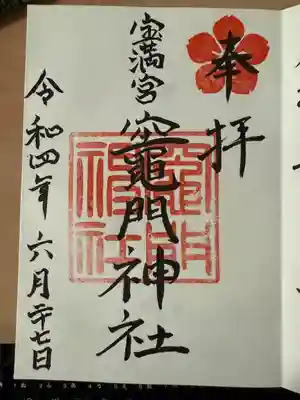 奉拝
宝満宮
竈門神社
令和四年六月二十七日
竈門神社